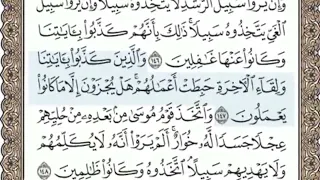 وَإِن يَرَوْا۟ سَبِيلَ ٱلرُّشْدِ لَا يَتَّخِذُوهُ سَبِيلًا وَإِن يَرَوْا۟ سَبِيلَ
ٱلْغَىِّ يَتَّخِذُوهُ سَبِيلًا ذَٰلِكَ بِأَنَّهُمْ كَذَّبُوا۟ بِـَٔايَـٰتِنَا
وَكَانُوا۟ عَنْهَا غَـٰفِلِينَ ١٤٦ وَٱلَّذِينَ كَذَّبُوا۟ بِـَٔايَـٰتِنَا
وَلِقَآءِ ٱلْـَٔاخِرَةِ حَبِطَتْ أَعْمَـٰلُهُمْ هَلْ يُجْزَوْنَ إِلَّا مَا كَانُوا۟
يَعْمَلُونَ ١٤٧ وَٱتَّخَذَ قَوْمُ مُوسَىٰ مِنۢ بَعْدِهِۦ مِنْ حُلِيِّهِمْ
عِجْلًا جَسَدًا لَّهُۥ خُوَارٌ أَلَمْ يَرَوْا۟ أَنَّهُۥ لَا يُكَلِّمُهُمْ
وَلَا يَهْدِيهِمْ سَبِيلًا ٱتَّخَذُوهُ وَكَانُوا۟ ظَـٰلِمِينَ ١٤٨